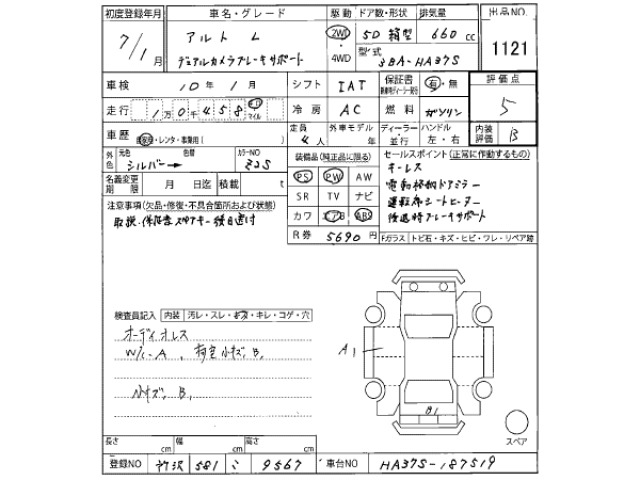 初度登録年月 車名・グレード 駆動 ドア数・形状 排気量 出品NO.
7/1月 アルト L 2WD ・4WD 5D 箱型 660 cc 1121
デュアルカメラブレーキサポート 型式 3BA-HA37S
車検 10年 1月 シフト IAT 保証書 有・無 評価点
走行 1万0千458 km マイル 冷房 AC 燃料 ガソリン 5
車歴 自家用・レンタ・事業用( ) 定員 4人 外車モデル 年 ディーラー・並行 ハンドル 左・右 内装評価 B
外色 元色 シルバー→ 色替 カラーNO Z2S 装備品(純正品に限る) セールスポイント(正常に作動するもの)
名義変更期限 月 日迄 積載 t PS PW AW キーレス
注意事項(欠品・修復・不具合箇所および状態) SR TV ナビ 電動格納ドアミラー
取説、保証書スペアキー後日送付 カワ エアB ABS 運転席シートヒーター
後退時ブレーキサポート
R券 5690円 Fガラス トビ石・キズ・ヒビ・ワレ・リペア跡
検査員記入 内装 汚レ・スレ・キズ・キレ・コゲ・穴
オーディオレス
W/C-A、 小キズ、B、
A1
小キズ、B、
B1
スペア
長さ cm 幅 cm 高さ cm
登録NO 581 ミ 9567 車台NO HA37S-187519